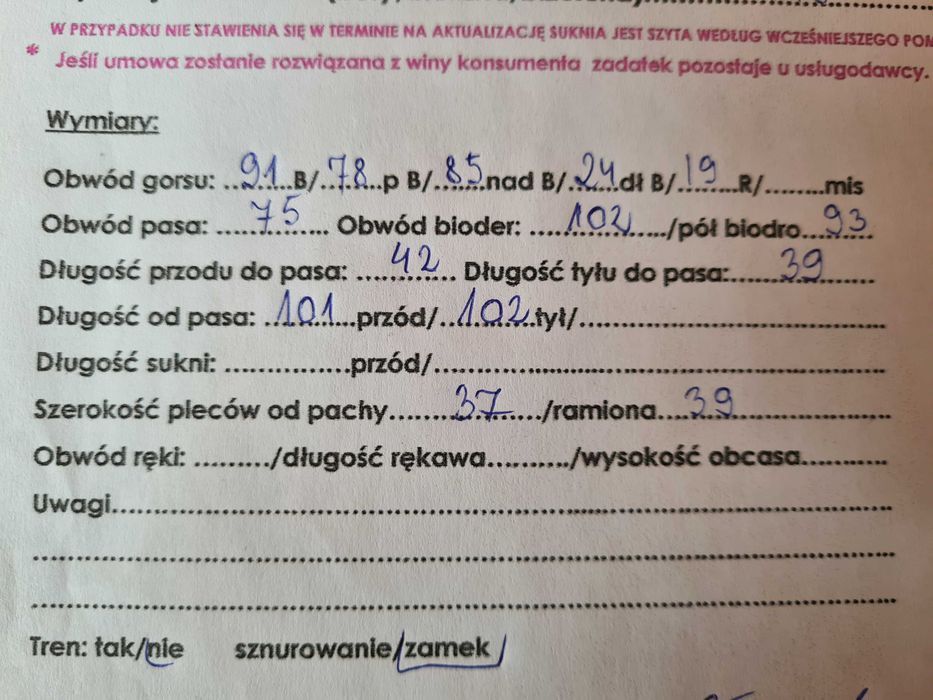 W PRZYPADKU NIE STAWIENIA SIĘ W TERMINIE NA AKTUALIZACJĘ SUKNIA JEST SZYTA WEDŁUG WCZEŚNIEJSZEGO
* Jeśli umowa zostanie rozwiązana z winy konsumenta zadatek pozostaje u usługodawcy.
Wymiary:
Obwód gorsu: ..91..B/..78..p B/..85..nad B/..24..dł B/..19..R/........mis
Obwód pasa: ......75...... Obwód bioder: ......102....../pół biodro...93...
Długość przodu do pasa: ....42.... Długość tyłu do pasa:......39......
Długość od pasa: ..101..przód/..102..tył/........................
Długość sukni: ...............przód/........................
Szerokość pleców od pachy......37....../ramiona....39............
Obwód ręki: ........./długość rękawa........../wysokość obcasa..........
Uwagi........................
Tren: tak/nie sznurowanie/zamek